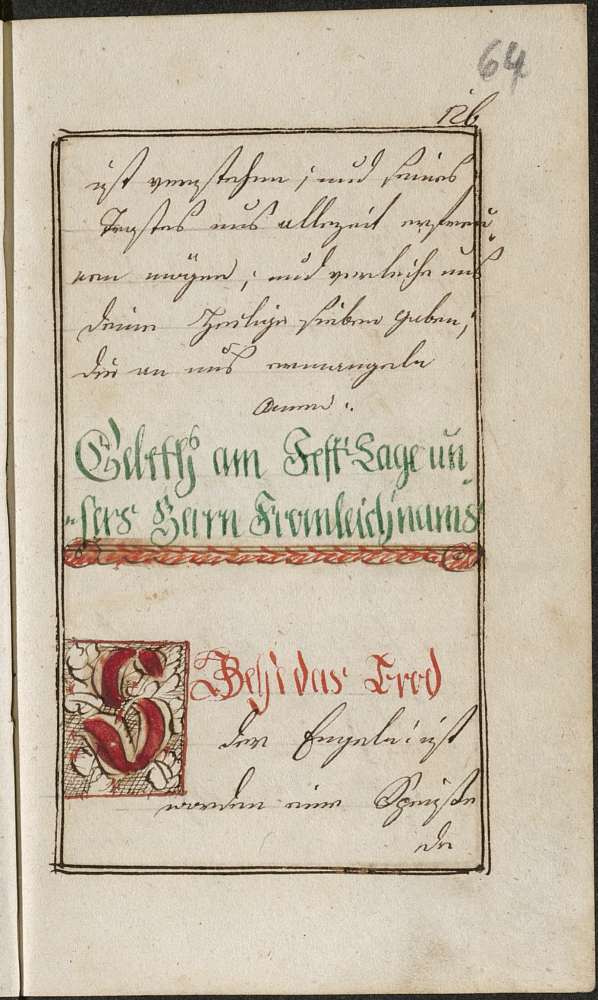 64
126
ist verstehen; und seines
Trostes uns allezeit erfreu„
en mögen, und verleihe uns
deine Heilige sieben gaben,
die an uns ermangeln
Amen.
Gebeth am Fest Tage un
„sers Herrn Fronleichnams
Seht das Brod
der Engeln ist
worden eine Speiße
de